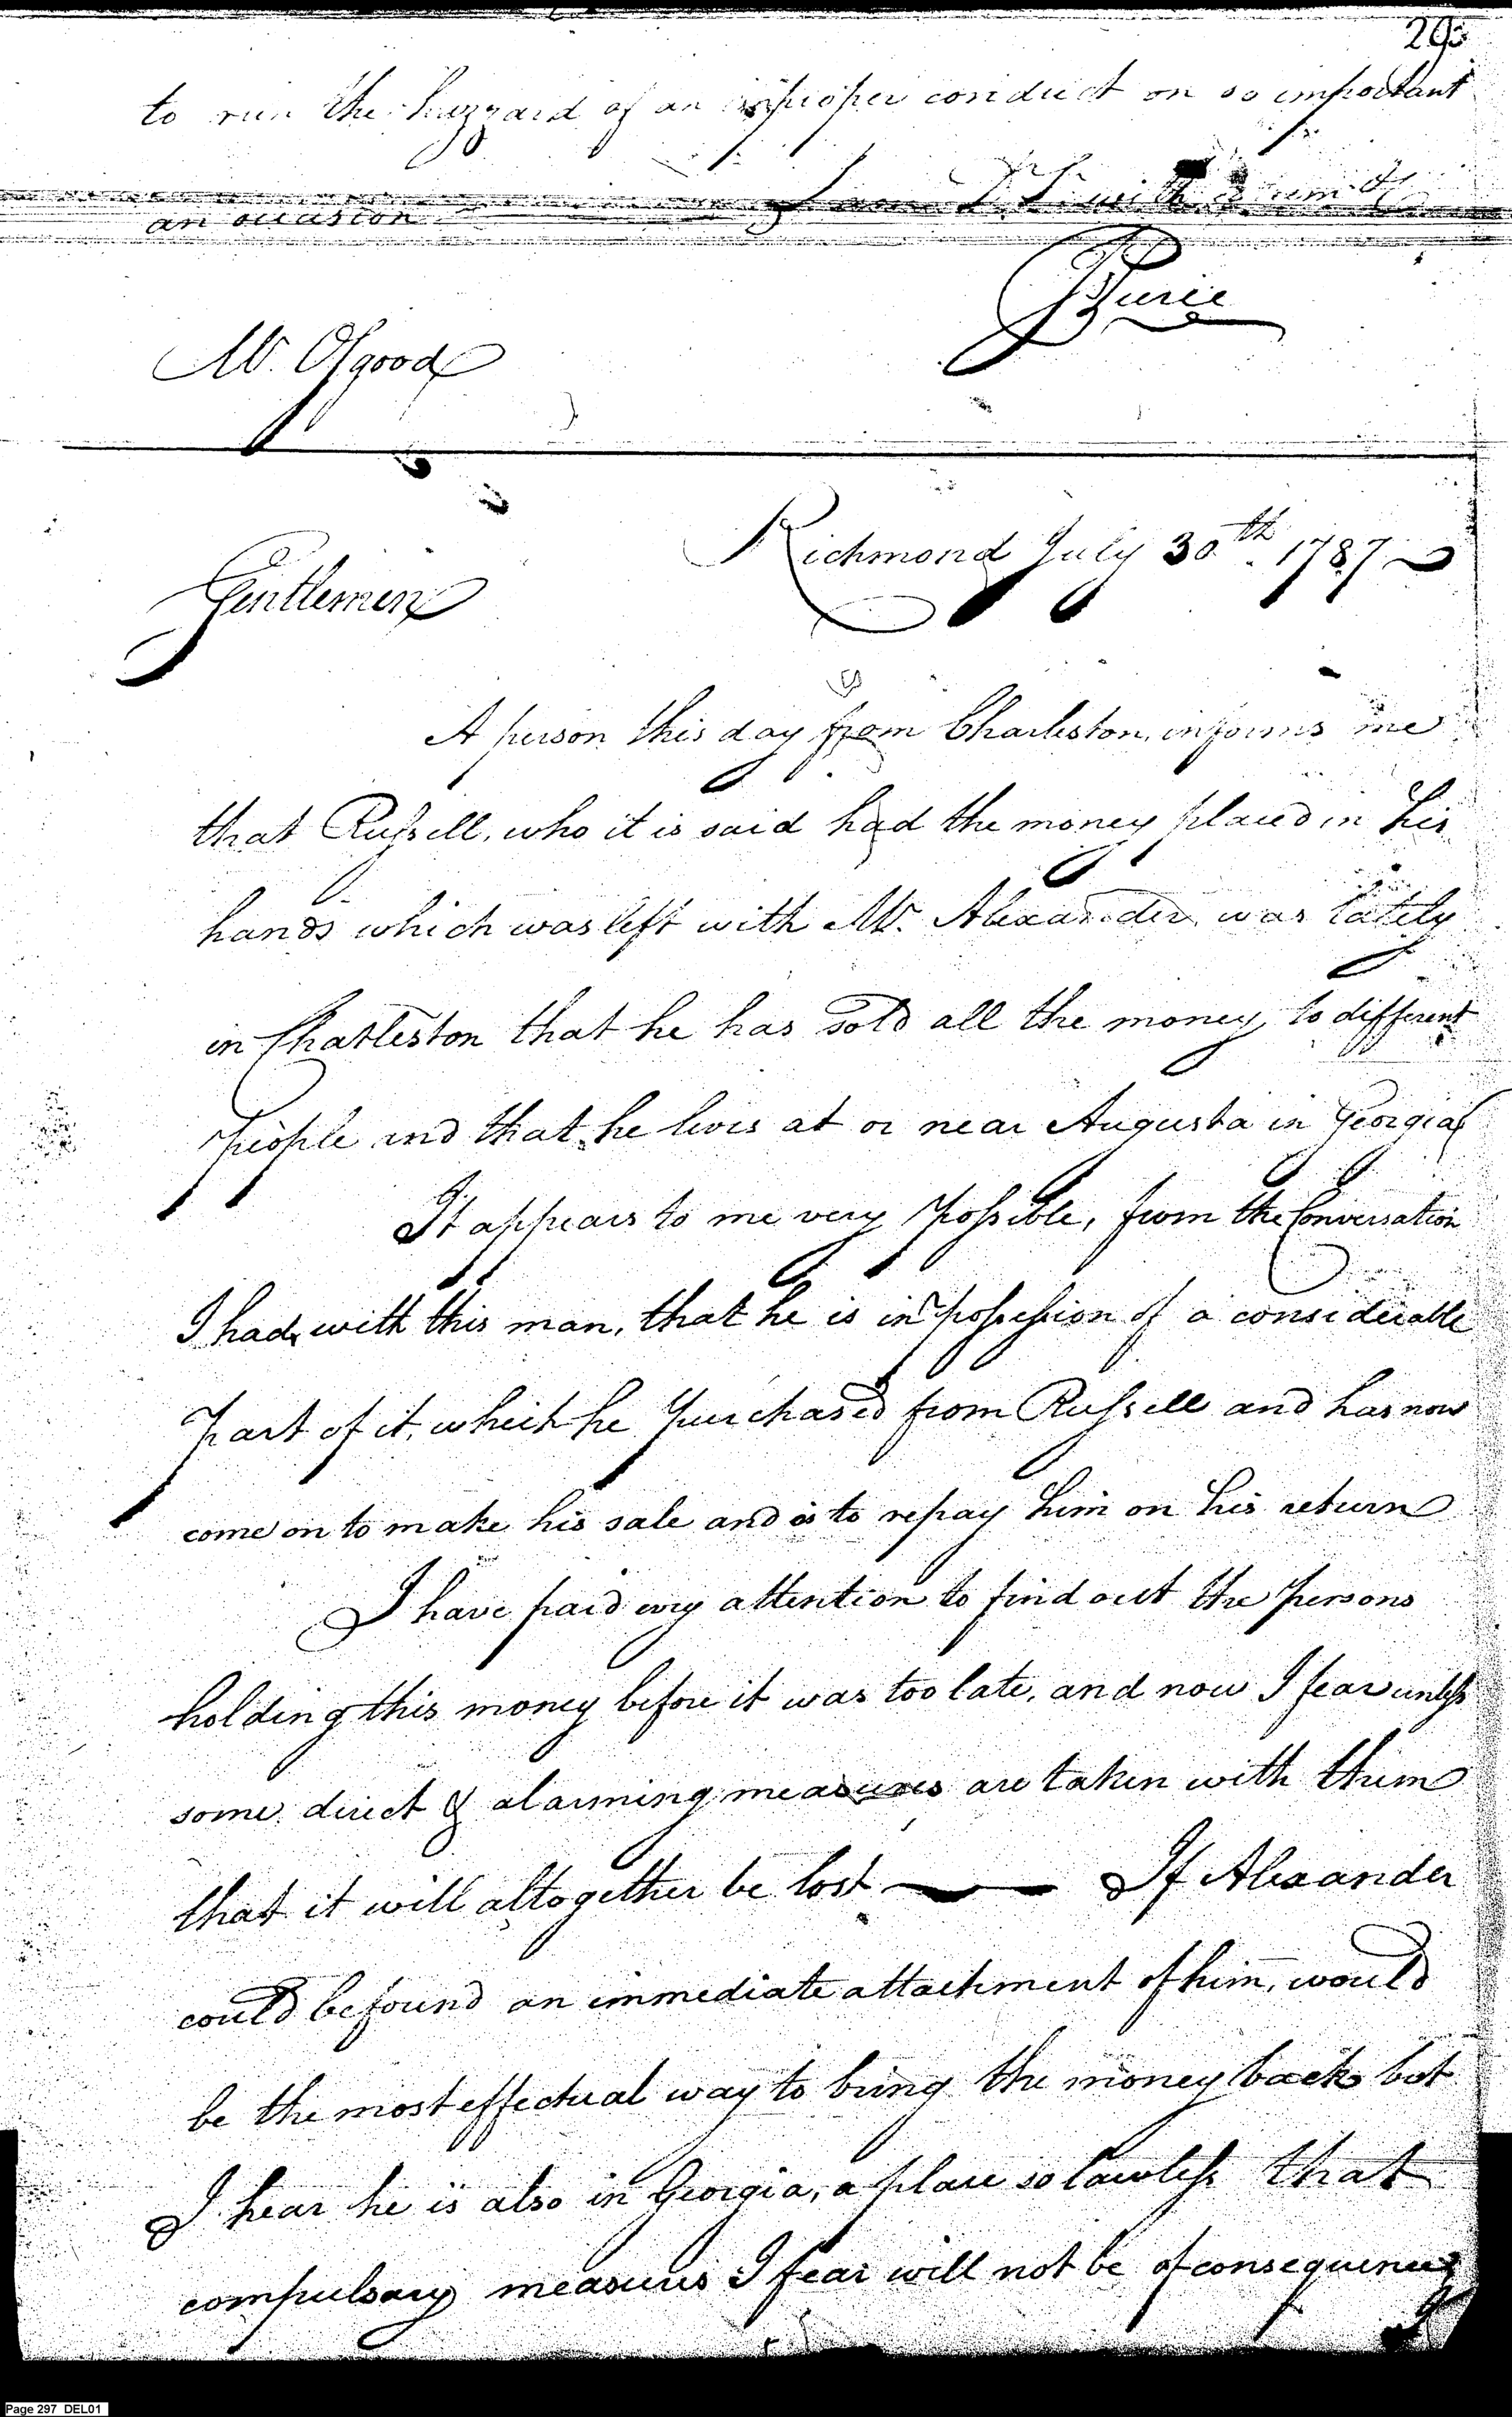 29
to run the hazzard of an improper conduct on so important
an occasion I am with
Pierce
Mr. Osgood
Richmond July 30th. 1787
Gentlemen
A person this day from Charleston, informs me
that Russell, who it is said had the money placed in his
hands which was left with Mr. Alexander, was lately
in Charleston that he has sold all the money, to different
People and that he lives at or near Augusta in Georgia
It appears to me very Possible, from the Conversation
I had, with this man, that he is in Possession of a considerable
Part of it, which he Purchased from Russell and has now
come on to make his sale and is to repay him on his return
I have paid evry attention to find out the Persons
holding this money before it was too late, and now I fear unless
some direct & alarming measures are taken with them
that it will altogether be lost — If Alexander
could be found an immediate attachment of him, would
be the most effectual way to bring the money back but
I hear he is also in Georgia, a place so lawless that
compulsary measures I fear will not be of consequence
Page 297 DEL01